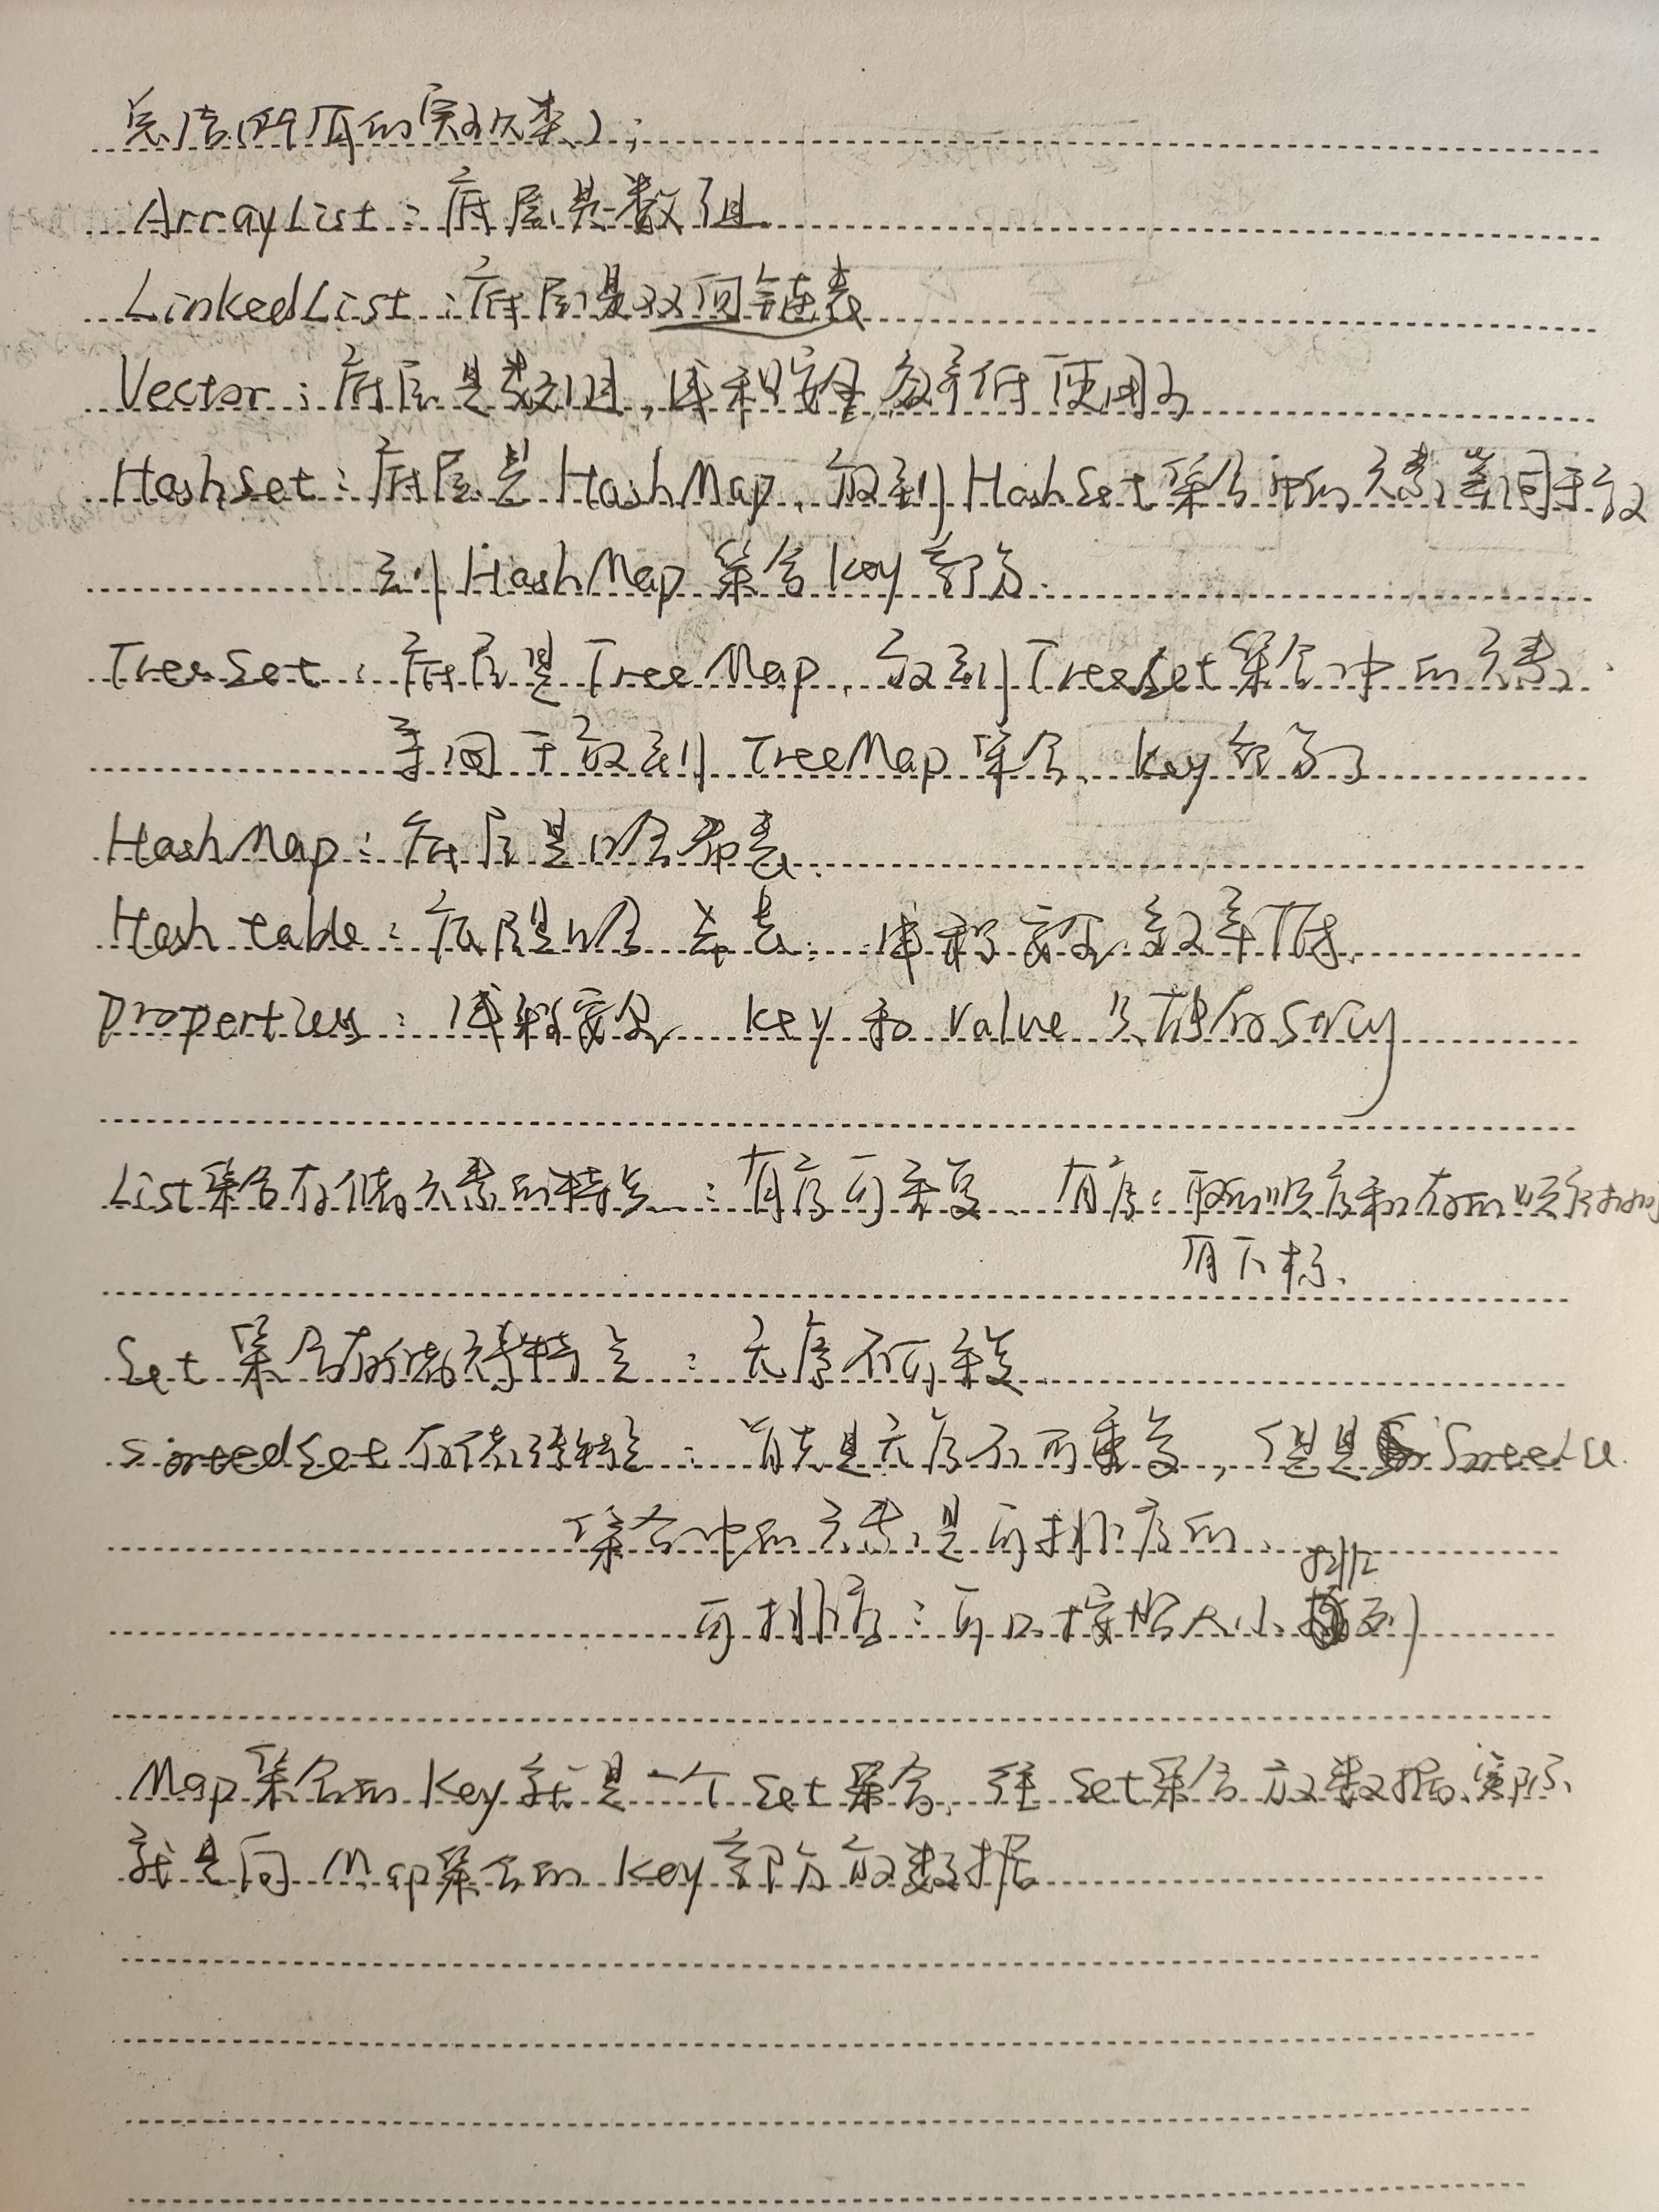 总结(所有的实现类):
ArrayList:底层是数组.
LinkedList:底层是双向链表
Vector:底层是数组,线程安全,效率低 使用少
HashSet:底层是HashMap,放到HashSet集合中的元素等同于放
到HashMap集合key部分.
TreeSet:底层是TreeMap,放到TreeSet集合中的元素
等同于放到TreeMap集合 key部分了
HashMap:底层是哈希表.
Hashtable:底层是哈希表. 线程安全,效率低.
Properties:线程安全 key和value只能
List集合存储元素的特点:有序可重复 有序:取的顺序和存的顺序
有下标.
Set集合存储元素特点:无序不可重复
SortedSet存储元素特点:首先是无序不可重复,但是
集合中的元素是可排序的.
可排序:可以按照大小排列
Map集合的key就是一个Set集合.往Set集合放数据,实际
就是向Map集合的key部分放数据